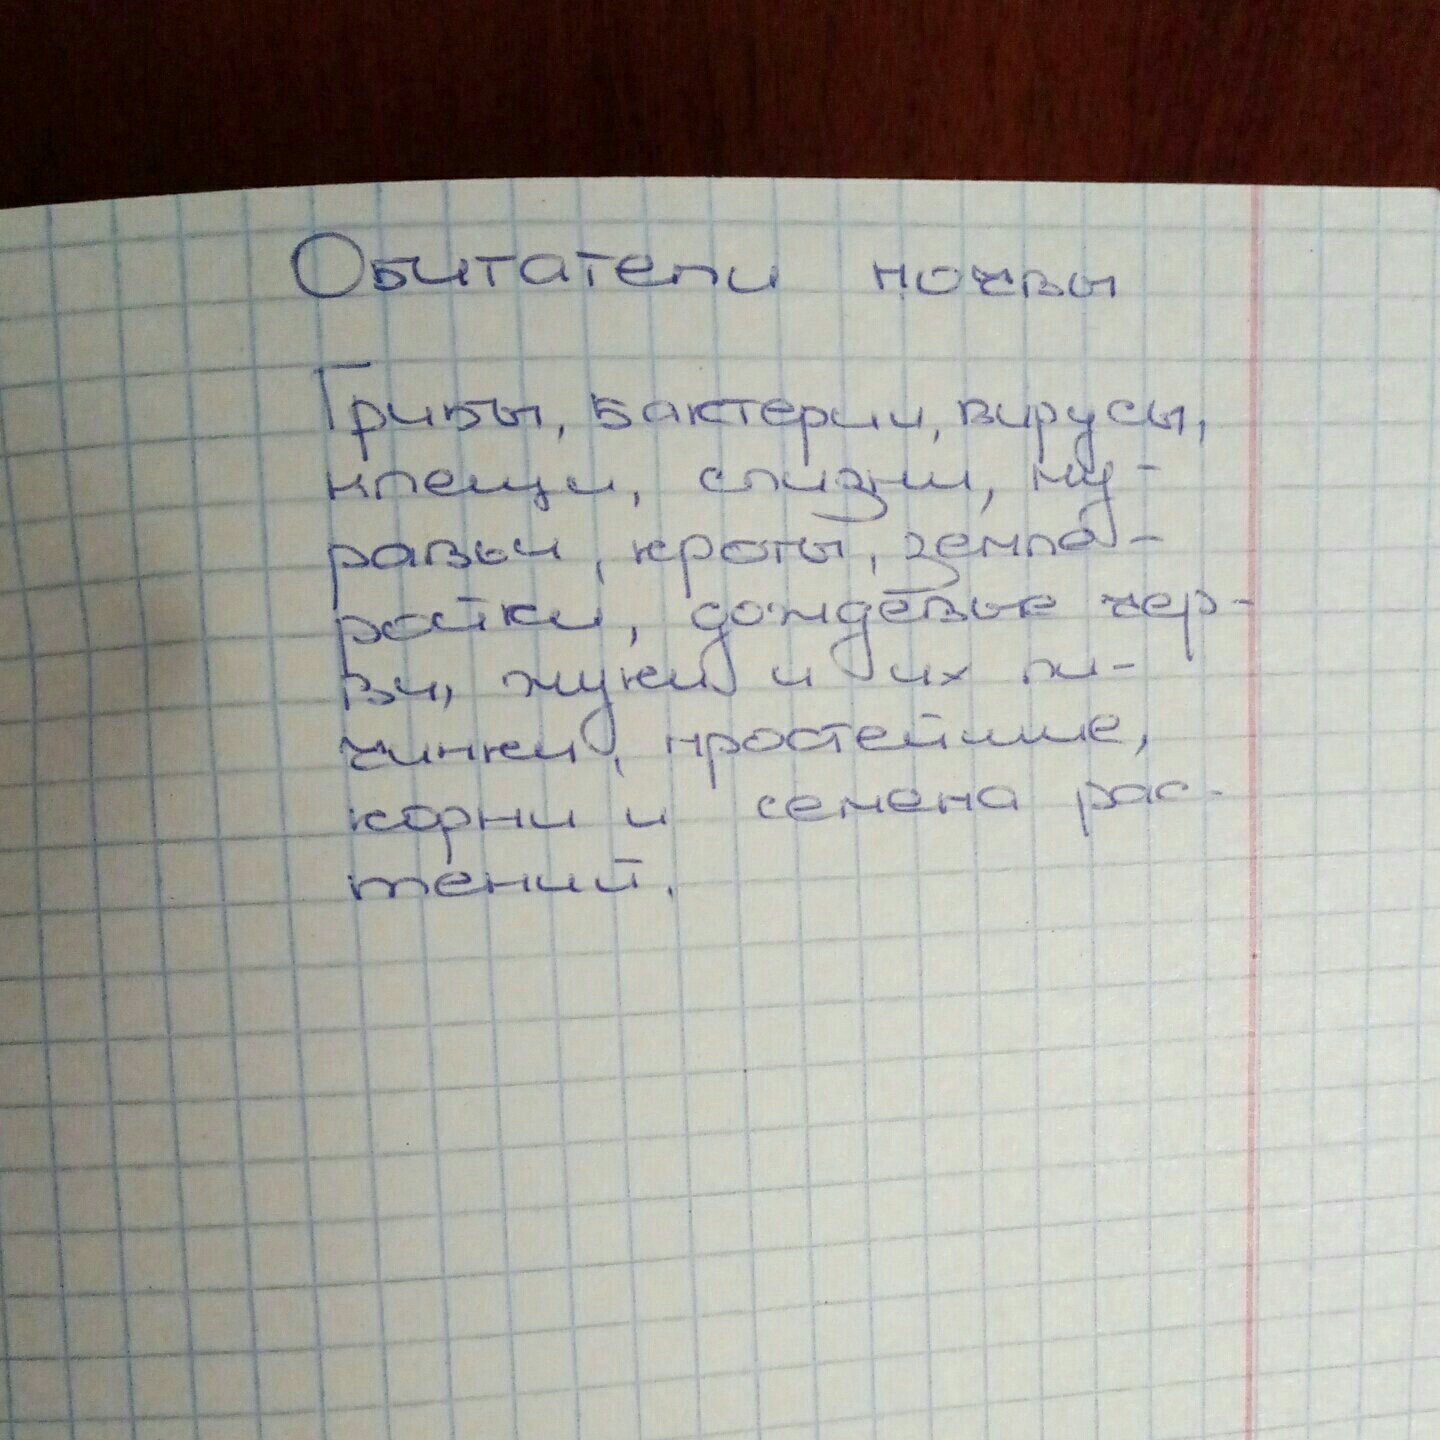 Обитатели почвы
Грибы, бактерии, вирусы,
клещи, слизни, му-
равьи, кроты, земле-
ройки, дождевые чер-
ви, жуки и их ли-
чинки, простейшие,
корни и семена рас-
тений.